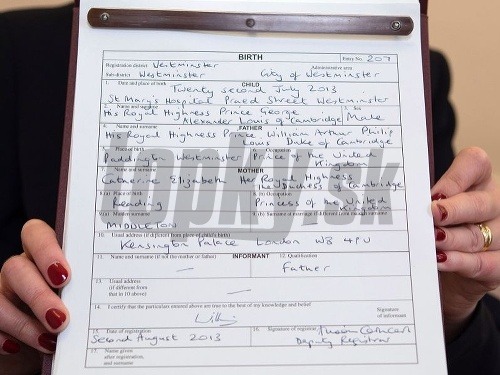 BIRTH
Entry No. 207
Registration district Westminster
Administrative area
Sub-district Westminster
City of Westminster
CHILD
1. Date and place of birth
Twenty second July 2013
St Mary's Hospital Praed Street Westminster
2. Name and surname
3. Sex
His Royal Highness Prince George
Alexander Louis of Cambridge
Male
FATHER
4. Name and surname
His Royal Highness Prince William Arthur Philip
Louis Duke of Cambridge
5. Place of birth
6. Occupation
Paddington Westminster
Prince of the United
Kingdom
MOTHER
7. Name and surname
Catherine Elizabeth Her Royal Highness
The Duchess of Cambridge
8.(a) Place of birth
8.(b) Occupation
Reading
Princess of the United
Kingdom
9.(a) Maiden surname
9.(b) Surname at marriage if different from maiden surname
MIDDLETON
10. Usual address (if different from place of child's birth)
Kensington Palace London W8 4PU
INFORMANT
11. Name and surname (if not the mother or father)
12. Qualification
Father
13. Usual address
(if different from
that in 10 above)
14. I certify that the particulars entered above are true to the best of my knowledge and belief
Signature
of informant
15. Date of registration
Second August 2013
16. Signature of registrar
Deputy Registrar
17. Name given
after registration,
and surname
topky.sk